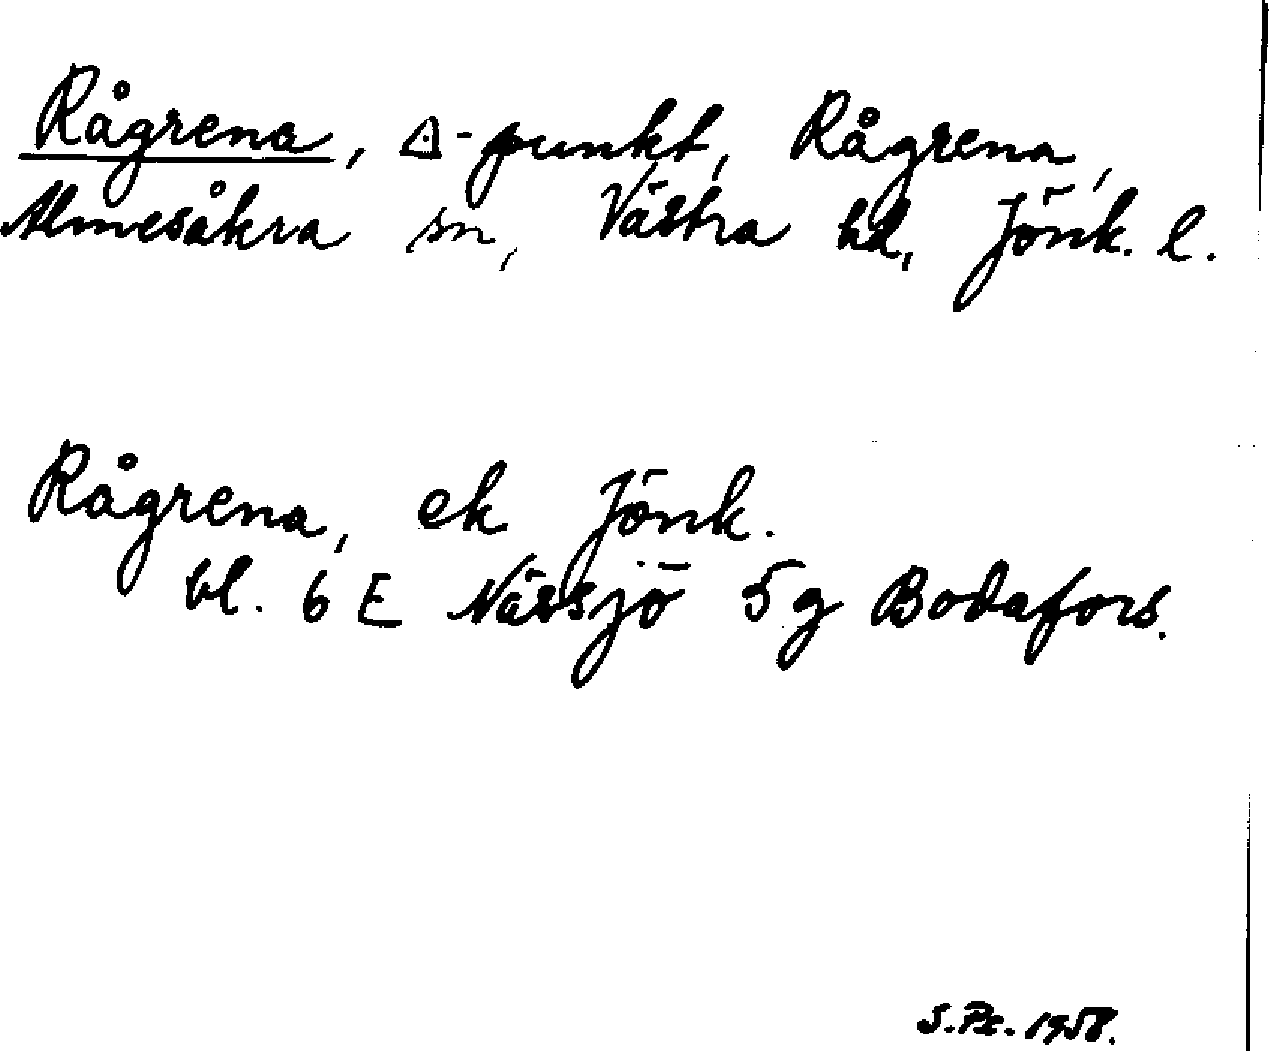 Rågrena, △-punkt, Rågrena,
Almesåkra sn, Västra hd, Jönk. l.
Rågrena, ek Jönk.
bl. 6 E Nässjö 5 g Bodafors.
1958.